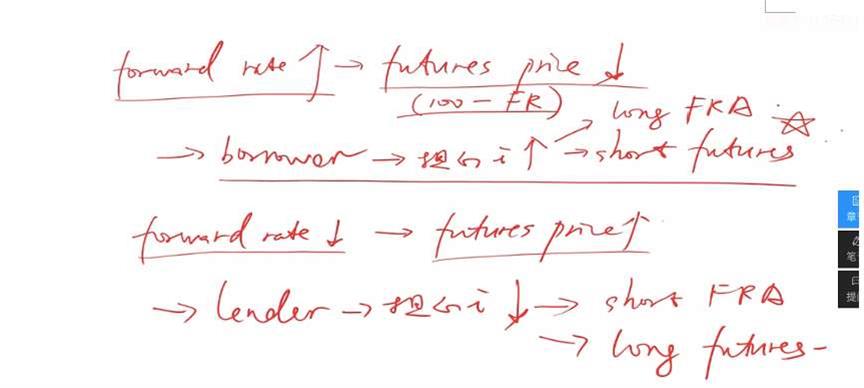 forward rate ↑ → futures price ↓
(100 - FR)
→ borrower → 担心i↑ → long FRA ☆
→ short futures
forward rate ↓ → futures price↑
→ lender → 担心i ↓ → short FRA
→ long futures
章
笔
提